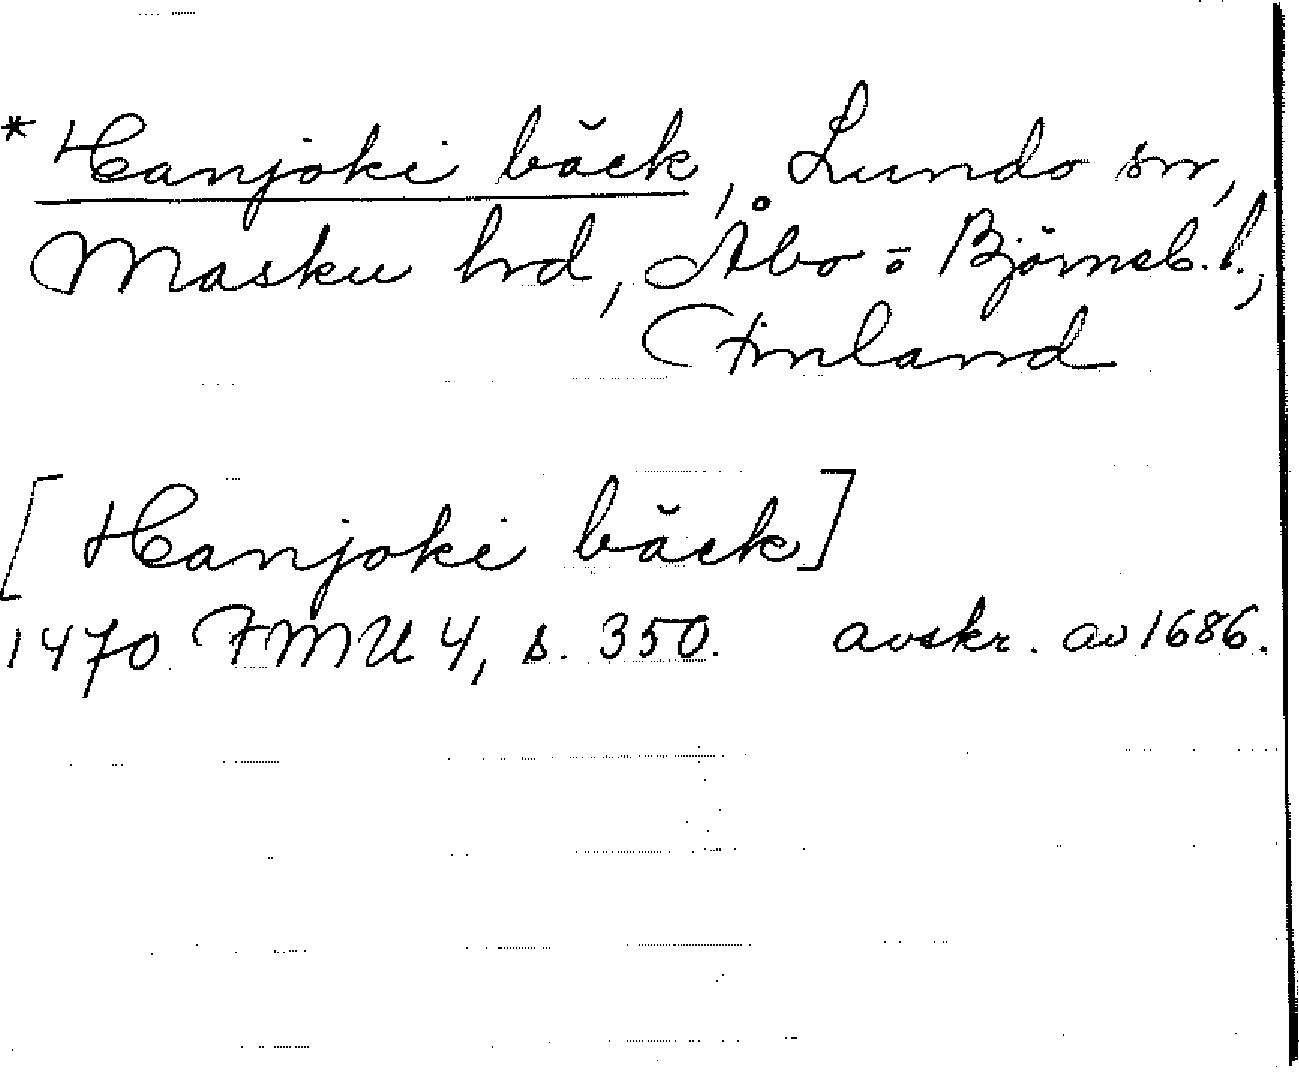 * Hanjoki bäck, Lundo sn,
Masku hrd, Åbo o Björneb. l.,
Finland
[Hanjoki bäck]
1470 FMU 4, s. 350. avskr. av 1686.